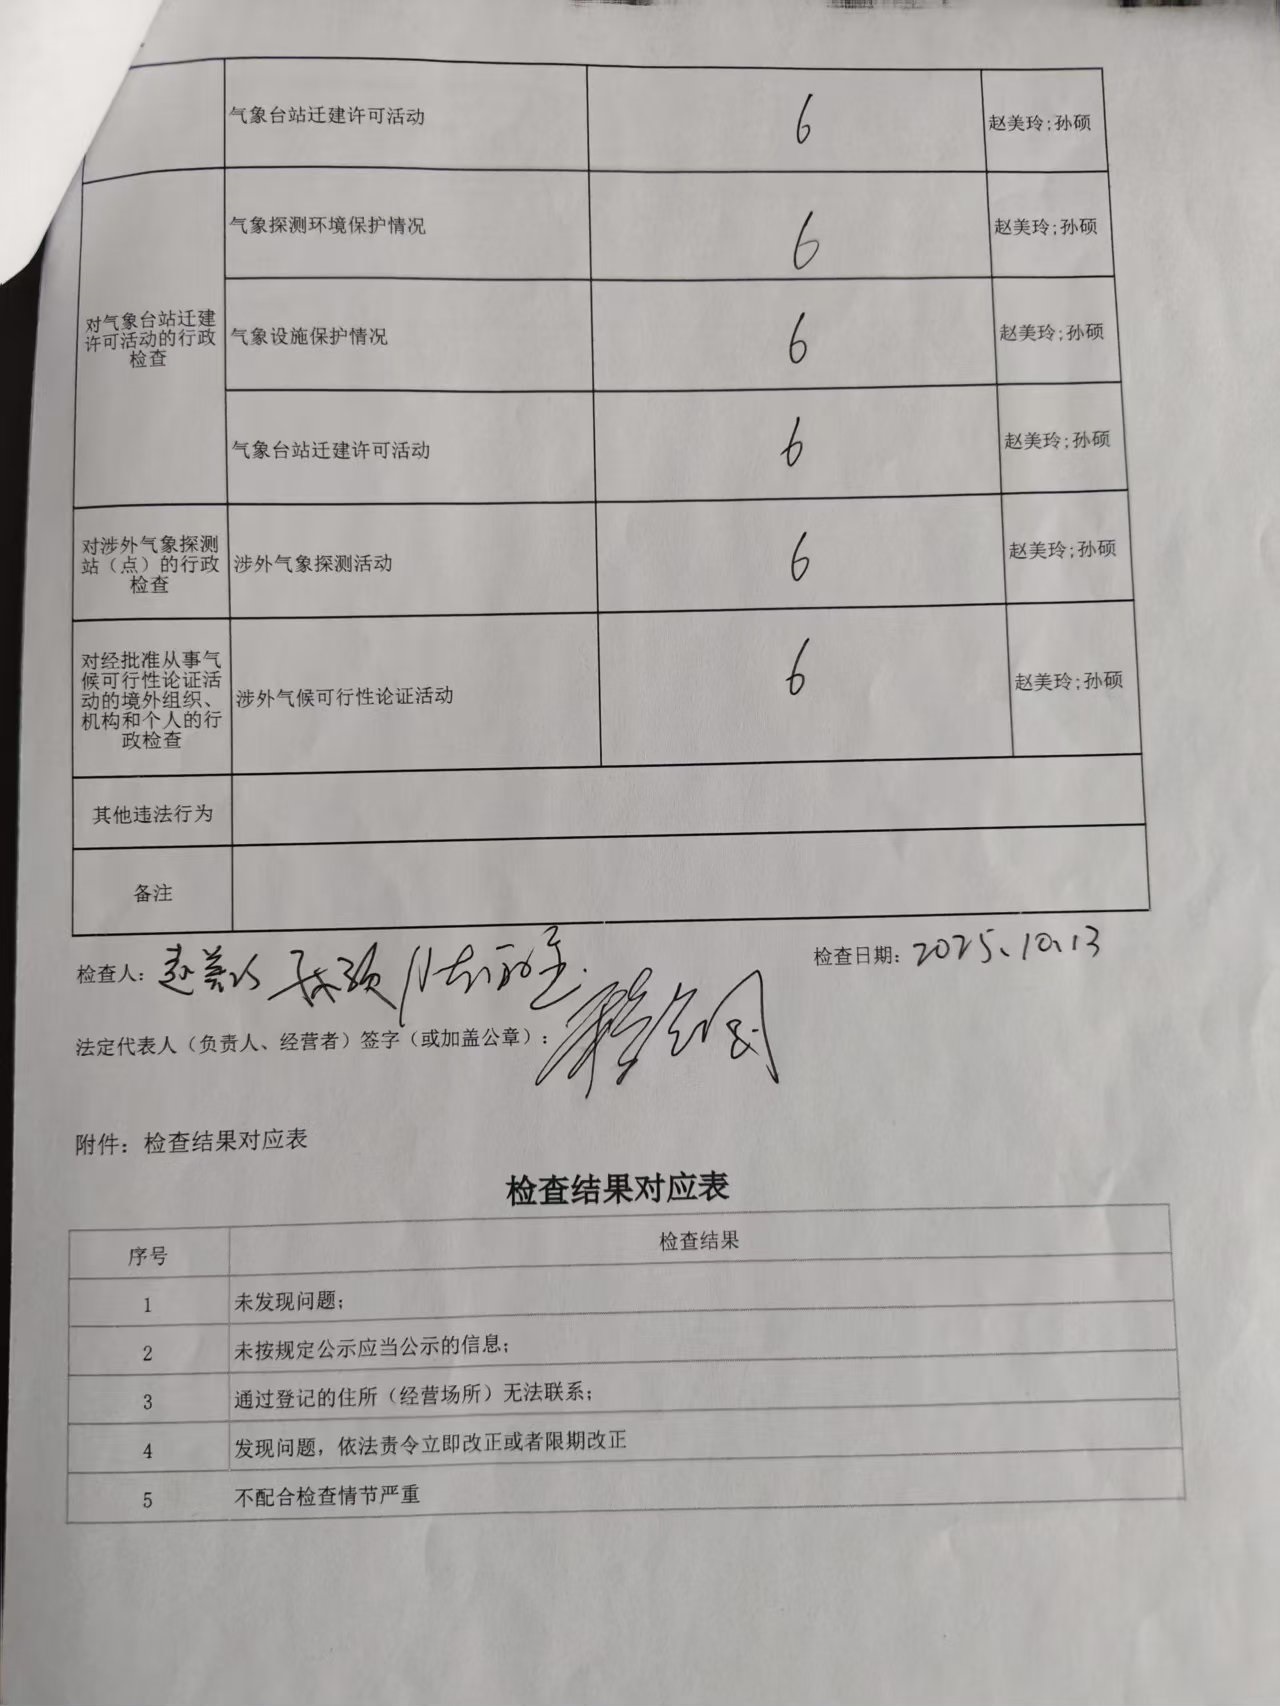 气象台站迁建许可活动 6 赵美玲;孙硕
气象探测环境保护情况 6 赵美玲;孙硕
对气象台站迁建
许可活动的行政
检查
气象设施保护情况 6 赵美玲;孙硕
气象台站迁建许可活动 6 赵美玲;孙硕
对涉外气象探测
站（点）的行政
检查
涉外气象探测活动 6 赵美玲;孙硕
对经批准从事气
候可行性论证活
动的境外组织、
机构和个人的行
政检查
涉外气候可行性论证活动 6 赵美玲;孙硕
其他违法行为
备注
检查人：赵美玲 孙硕 检查日期：2025.10.13
法定代表人（负责人、经营者）签字（或加盖公章）：
附件：检查结果对应表
检查结果对应表
序号 检查结果
1 未发现问题；
2 未按规定公示应当公示的信息；
3 通过登记的住所（经营场所）无法联系；
4 发现问题，依法责令立即改正或者限期改正
5 不配合检查情节严重